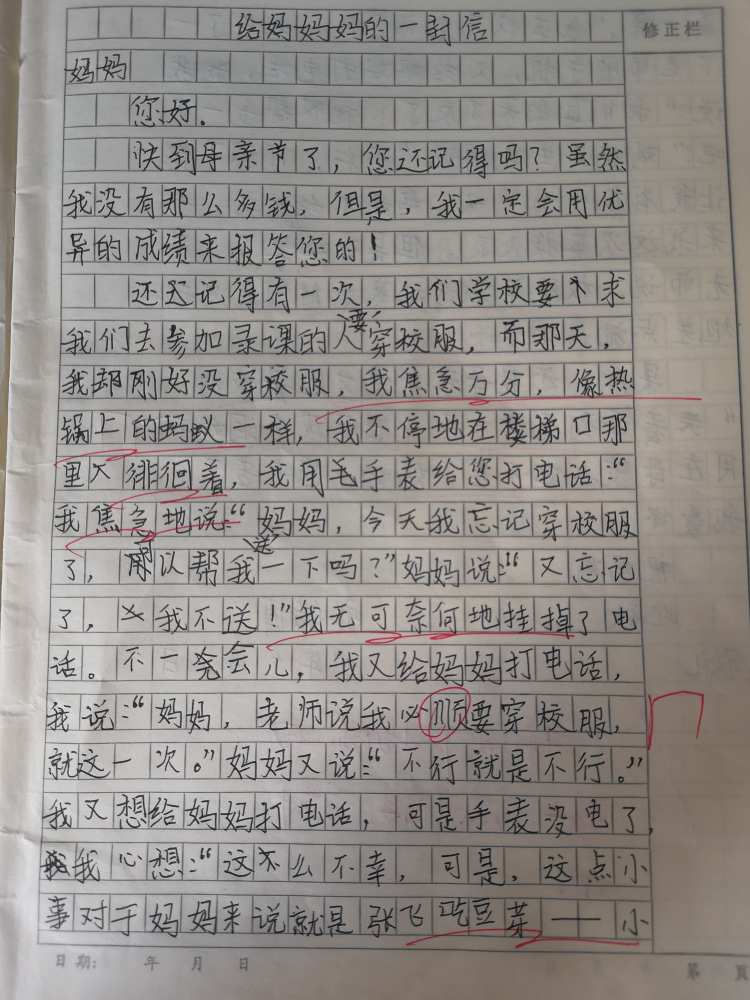 给妈妈妈的一封信
修正栏
妈妈
您好.
快到母亲节了，您还记得吗？虽然
我没有那么多钱，但是，我一定会用优
异的成绩来报答您的！
还记得有一次，我们学校要求
我们去参加录课的人要穿校服，而那天，
我却刚好没穿校服，我焦急万分，像热
锅上的蚂蚁一样，我不停地在楼梯口那
里徘徊着，我用手表给您打电话：“
我焦急地说：“妈妈，今天我忘记穿校服
了，可以帮我送一下吗？”妈妈说：“又忘记
了，我不送！”我无可奈何地挂掉了电
话。不一会儿，我又给妈妈打电话，
我说：“妈妈，老师说我必顺要穿校服，
就这一次。”妈妈又说：“不行就是不行。”
我又想给妈妈打电话，可是手表没电了，
我心想：“这么不幸，可是，这点小
事对于妈妈来说就是张飞吃豆芽——小
日期： 年 月 日
第 頁